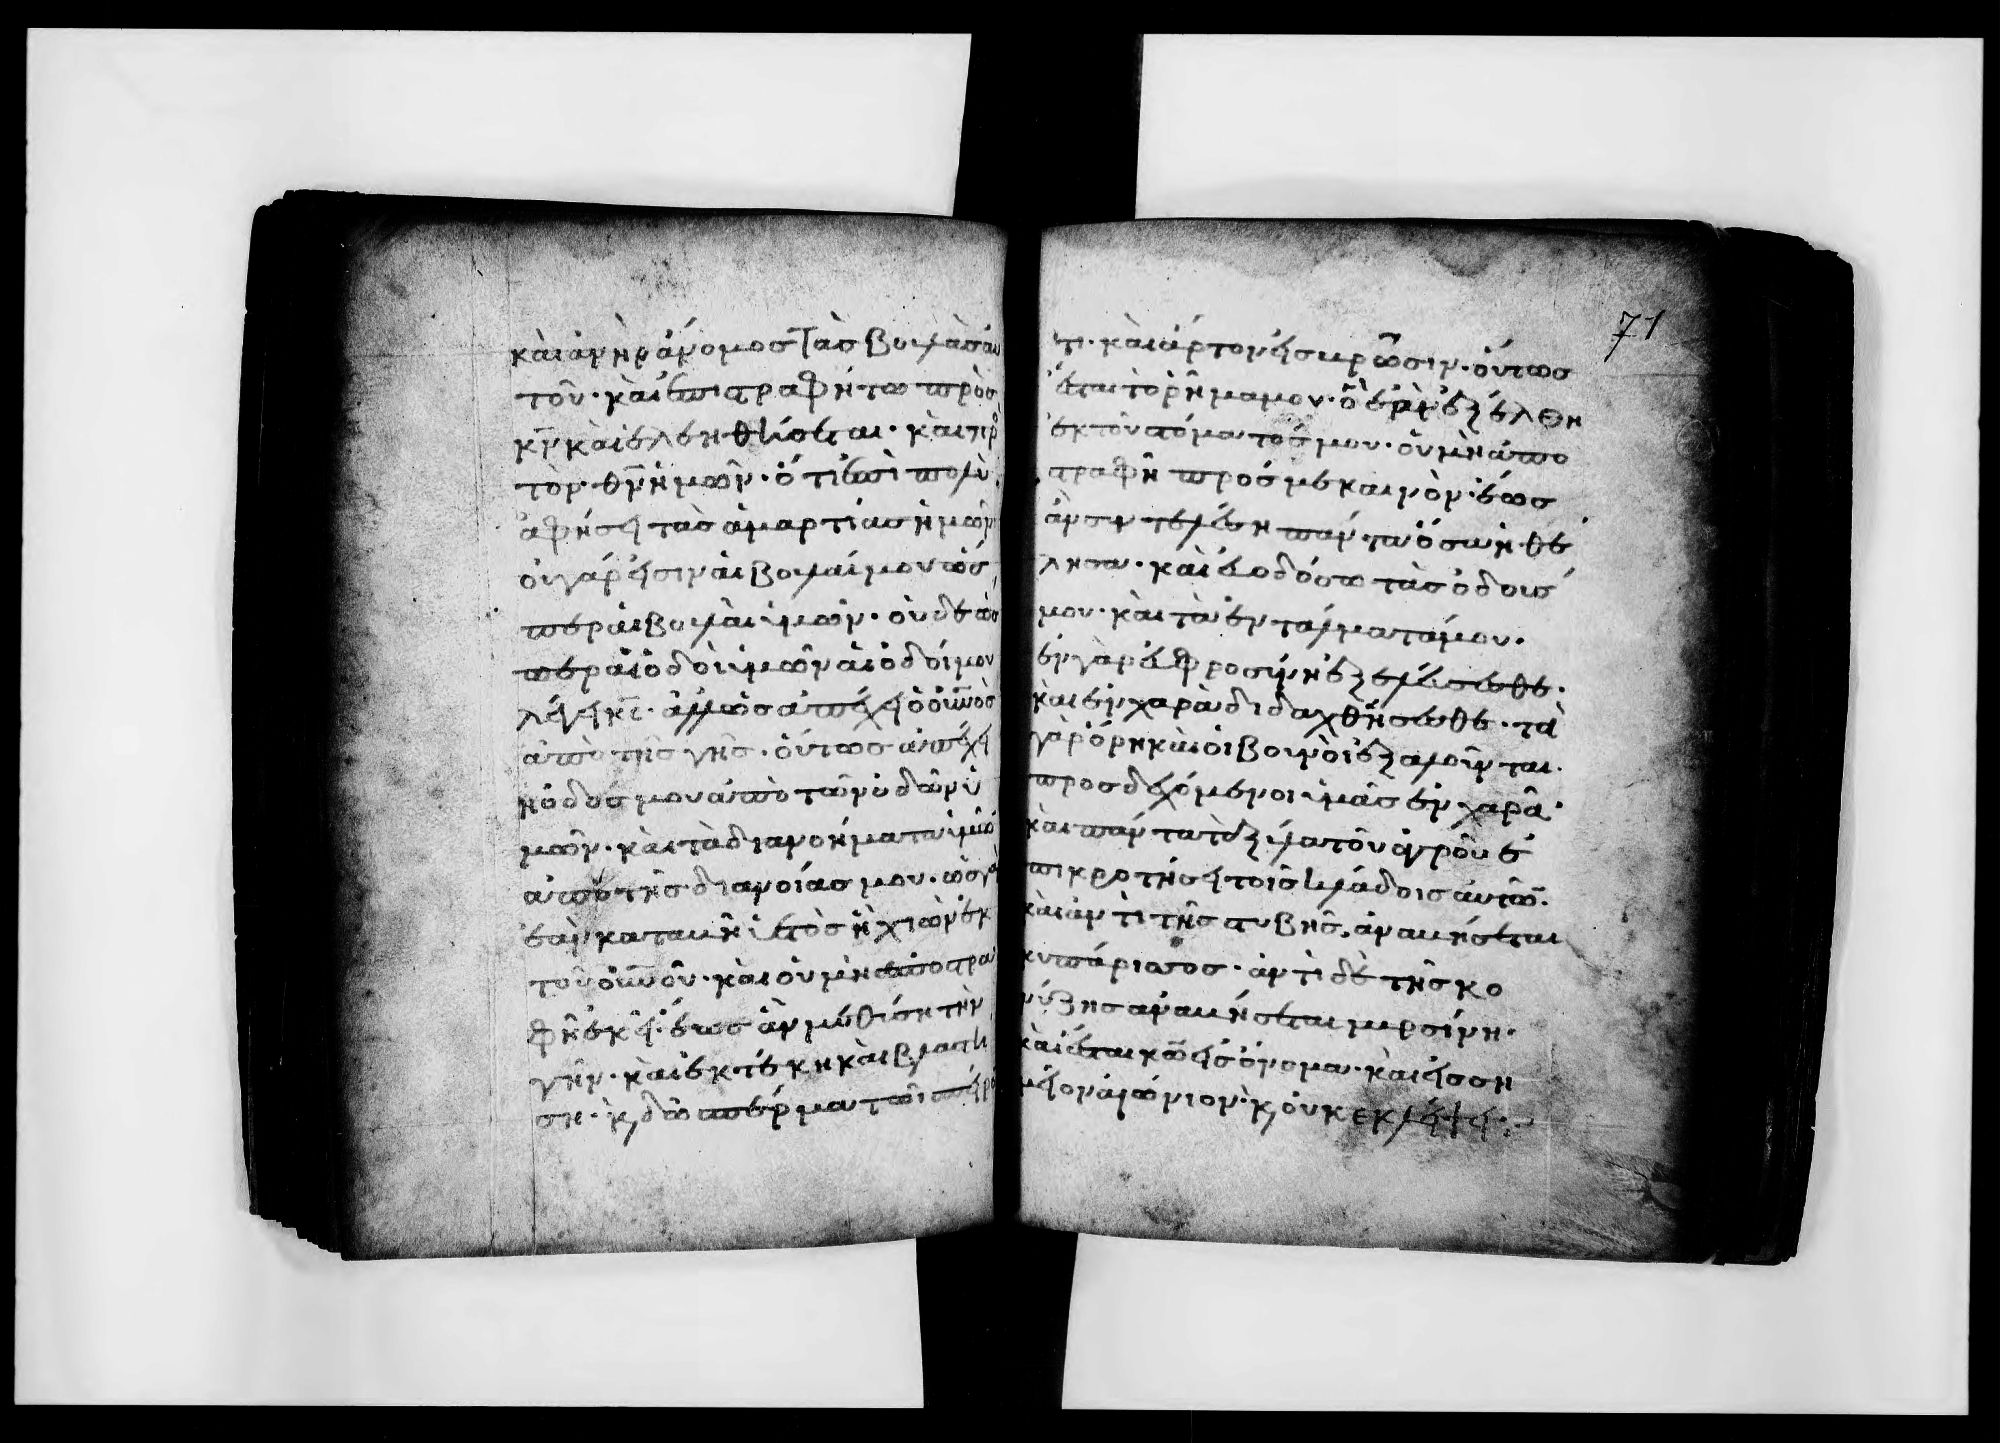 καὶ ἀνὴρ ἄνομος τὰς βουλὰς αὐ
τοῦ· καὶ ἐπιστραφήτω πρὸς
κν καὶ ἐλεηθήσεται· καὶ προ
τὸν θν ἡμῶν· ὅτι ἐπὶ πολὺ
ἀφήσει τὰς ἁμαρτίας ἡμῶν
οὐ γάρ εἰσιν αἱ βουλαί μου ὥσ
περ αἱ βουλαὶ ὑμῶν· οὐδὲ ὥσ
περ αἱ ὁδοὶ ὑμῶν αἱ ὁδοί μου
λέγει κς· ἀλλ' ὡς ἀπέχει ὁ οὐνος
ἀπὸ τῆς γῆς· οὕτως ἀπέχει
ἡ ὁδός μου ἀπὸ τῶν ὁδῶν ὑ
μῶν· καὶ τὰ διανοήματα ὑμῶ
ἀπὸ τῆς διανοίας μου· ὡς γὰ
ἐὰν καταβῆ ὑετὸς ἢ χιὼν ἐκ
τοῦ οὐνοῦ· καὶ οὐ μὴ ἀποστρα
φῆ ἐκεῖ· ἕως ἂν μεθύση τὴν
γῆν· καὶ ἐκτέκη καὶ βλαστή
ση· κ δῶ σπέρμα τῶ σπείρο
71
τι· καὶ ἄρτον εἰς βρῶσιν· οὕτως
ἔσται τὸ ρῆμα μου· ὃ ἐὰν ἐξέλθη
ἐκ τοῦ στόματός μου· οὐ μὴ ἀπο
στραφῆ πρός με καινὸν· ἕως
ἂν συντελέση πάντα ὅσα ἠθέ
λησα· καὶ εὐοδώσω τὰς ὁδούς
μου· καὶ τὰ ἐντάλματά μου·
ἐν γὰρ εὐφροσύνη ἐξελεύσεσθε·
καὶ ἐν χαρᾶ διδαχθήσεσθε· τὰ
γὰρ ὄρη καὶ οἱ βουνοὶ ἐξαλοῦνται·
προσδεχόμενοι ὑμᾶς ἐν χαρᾶ·
καὶ πάντα τὰ ξύλα τοῦ ἀγροῦ ἐ
πικροτήσει τοῖς κλάδοις αὐτῶ·
καὶ ἀντὶ τῆς στυβῆς ἀναβήσεται
κυπάρισσος· ἀντὶ δὲ τῆς κο
νύζης ἀναβήσεται μυρσίνη·
καὶ ἔσται κω εἰς ὄνομα· καὶ εἰς ση
μεῖον αἰώνιον· κ οὐκ ἐκλείψει·